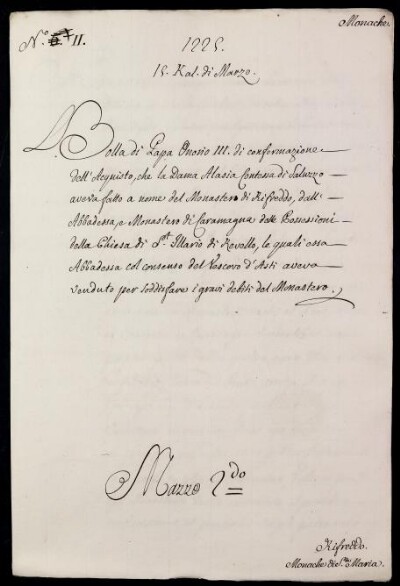 Monache.
N.º II.
1225.
15. Kal. di Marzo.
Bolla di Papa Onorio III. di confermazione
dell'Acquisto, che la Dama Alasia Contessa di Saluzzo
aveva fatto a nome del Monastero di Rifreddo, dall'
Abbadessa, e Monastero di Caramagna delle Possessioni
della Chiesa di S.t Illario di Revello, le quali essa
Abbadessa col consenso del Vescovo d'Asti aveva
venduto per soddisfare i gravi debiti del Monastero.
Mazzo 2.do
Rifreddo.
Monache di S.ta Maria.